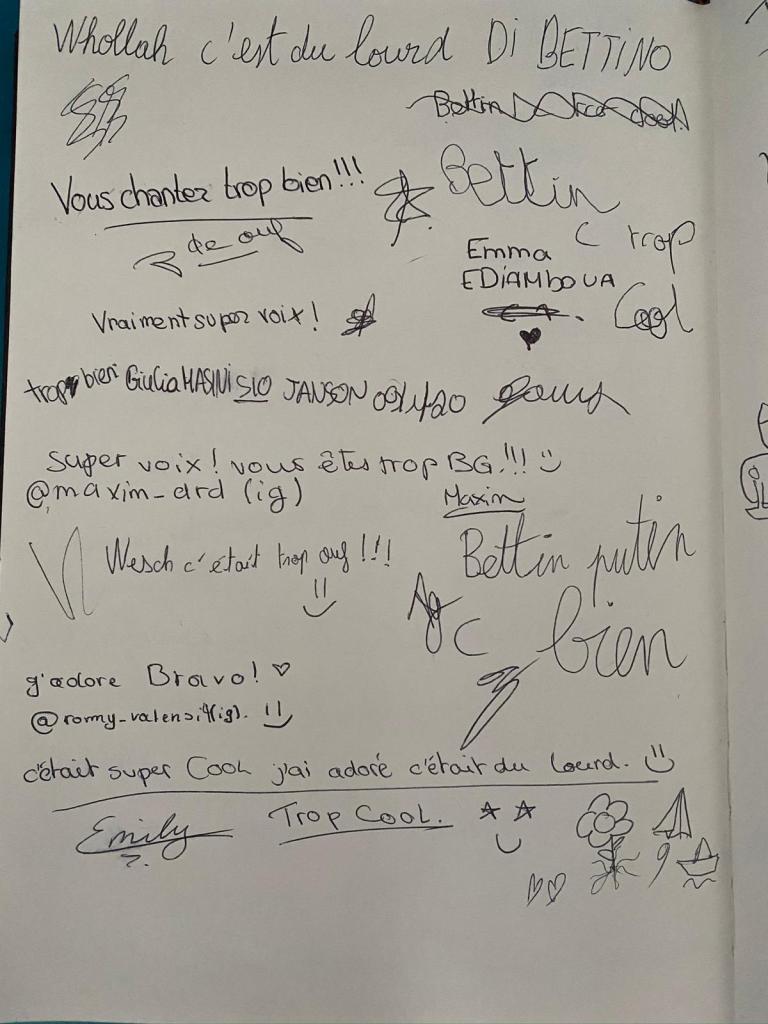 Whollah c'est du lourd Di BETTiNO
Bettin
Vous chantez trop bien!!!
Bettin
de ouf
C trop
Emma
EDiAMboUA
Cool
Vraiment super voix!
trop bien Giulia MASINi SIO JANSON 09/1/20
super voix! vous êtes trop BG!!!
@maxim_drd (ig)
Maxim
Wesch c'était trop ouf!!!
Bettin putin
C bien
g'adore Bravo!
@romy_valensi4(ig).
c'était super Cool j'ai adoré c'était du lourd.
Emily
Trop Cool.